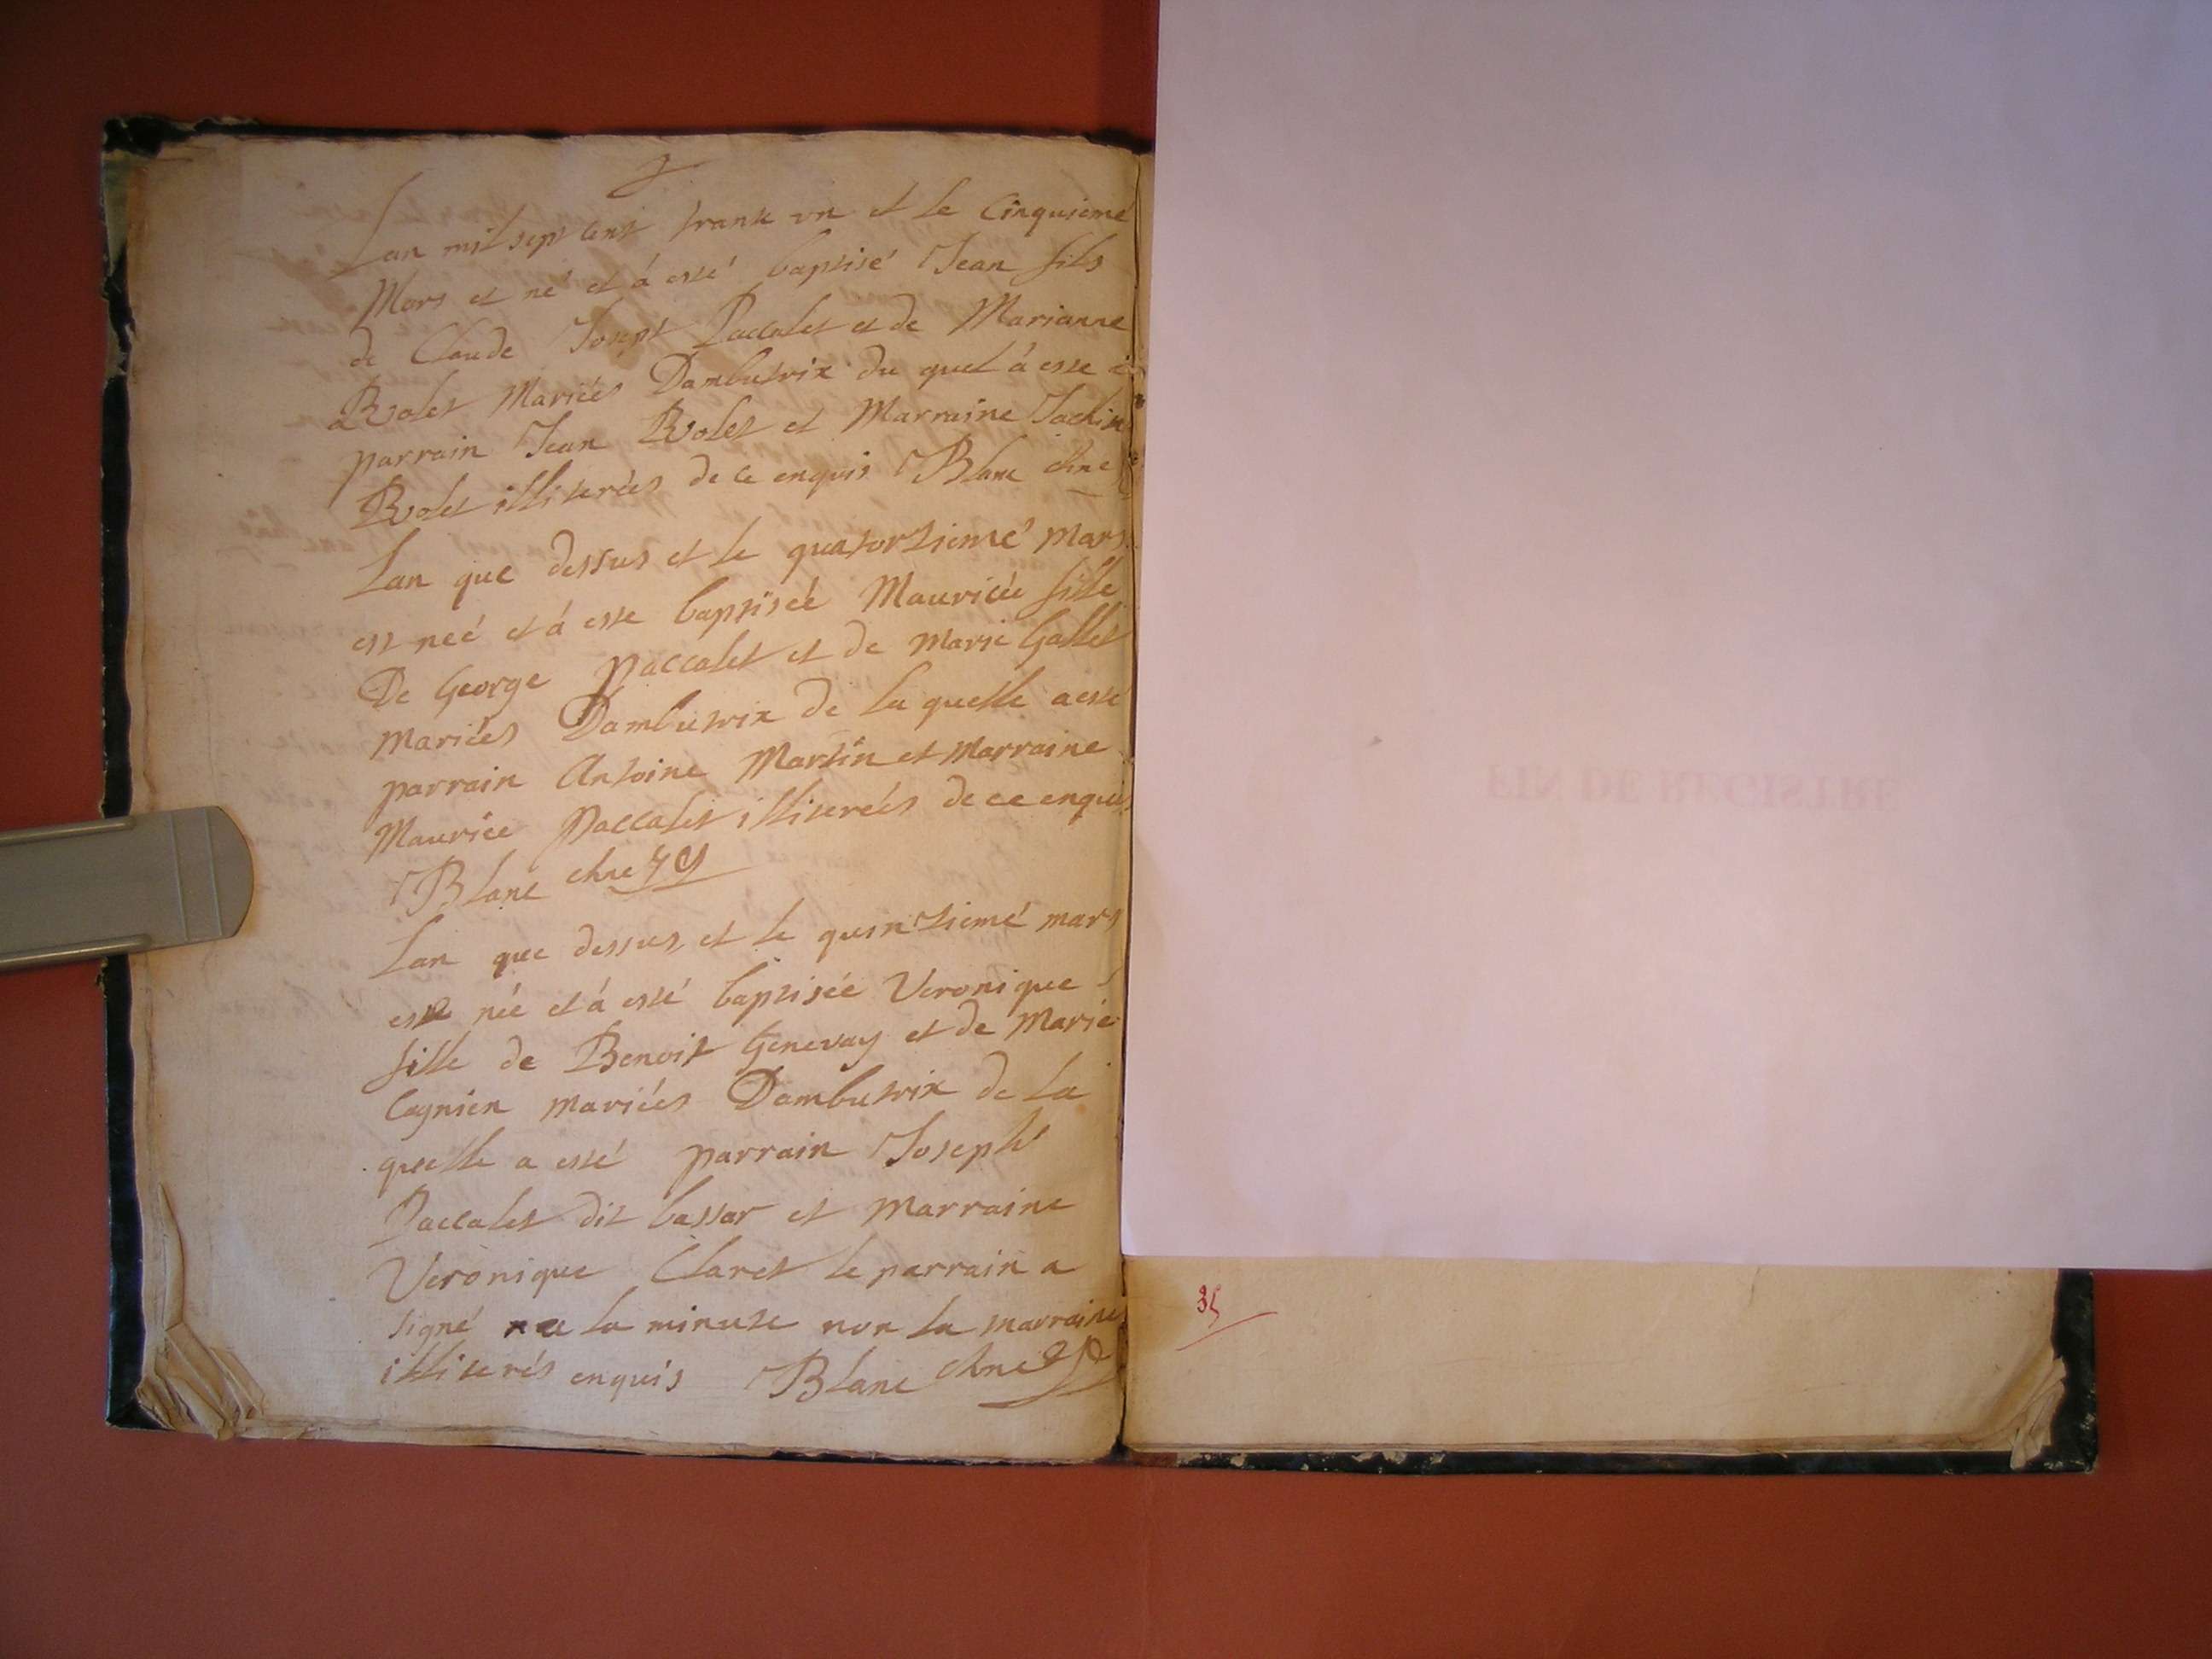 Lan mil sept cent trante un et le Cinquiemé
Mars et né et á esté baptisé Jean fils
de Claude Josept Paccalet et de Marianne
Rolet Mariées Dambutrix du quel á esté
parrain Jean Rolet et Marraine
Rolet illiterées de ce enquis Blanc chne
Lan que dessus et le quatorziemé mars
est neé et á esté baptiséé Mauricée fille
De George paccalet et de Marie Gallet
mariées Dambutrix de la quelle a esté
parrain Antoine Martin et Marraine
Maurice paccalet illiterées de ce enquis
Blanc chne
Lan que dessus et le quinziemé mars
est née et á esté baptisée Veronique
fille de Benoit Genevay et de Marie
Cagnien mariées Dambutrix de la
quelle a esté parrain Joseph
Paccalet dit bassar et marraine
Veronique Claret le parrain a
signé la minute non la marraine
illiterés enquis Blanc chne
35
FIN DE REGISTRE